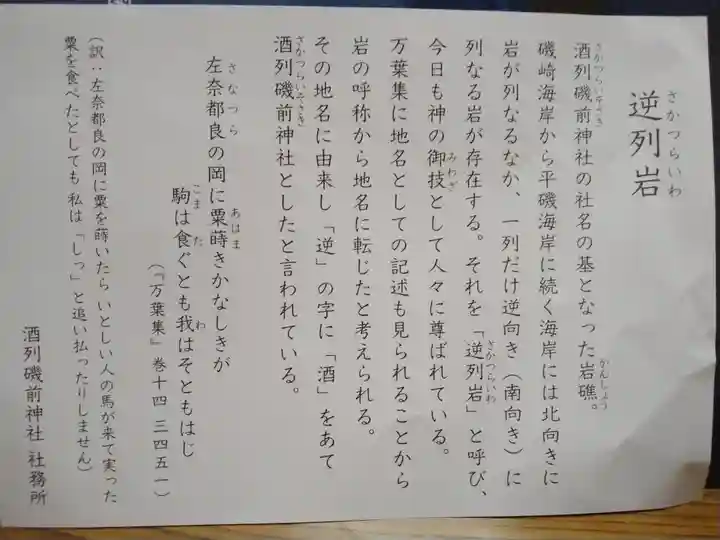 逆列岩
酒列磯前神社の社名の基となった岩礁。
磯崎海岸から平磯海岸に続く海岸には北向きに
岩が列なるなか、一列だけ逆向き（南向き）に
列なる岩が存在する。それを「逆列岩」と呼び、
今日も神の御技として人々に尊ばれている。
万葉集に地名としての記述も見られることから
岩の呼称から地名に転じたと考えられる。
その地名に由来し「逆」の字に「酒」をあて
酒列磯前神社としたと言われている。
左奈都良の岡に粟蒔きかなしきが
駒は食ぐとも我はそともはじ
（『万葉集』巻十四 三四五一）
（訳：左奈都良の岡に粟を蒔いたら いとしい人の馬が来て実った
粟を食べたとしても 私は「しっ」と追い払ったりしません）
酒列磯前神社 社務所